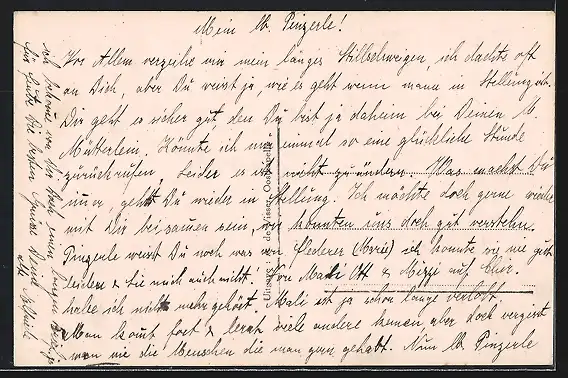 Mein lb. Pinzerle!
Vor Allem verzeihe mir mein langes Stillschweigen, ich dachte oft
an Dich, aber Du weisst ja, wie es geht wenn mann in Stellung ist.
Dir geht es sicher gut, den Du bist ja daheim bei Deinen lb.
Mütterlein. Könnte ich nur einmal so eine glückliche Stunde
zurückrufen, leider es ist nicht zu ändern. Was machst Du
immer, gehst Du wieder in Stellung. Ich möchte doch gerne wieder
mit Dir beisamen sein, wir konnten uns doch gut verstehn.
Pinzerle weisst Du noch was von ich konnte sie nie gut
leiden & Sie mich auch nicht! Von Mali Ott & Mizzi auf
habe ich nicht mehr gehört. Mali ist ja schon lange verlobt.
Man komt fort & lernt viele andere kenen, aber doch vergisst
man nie die Menschen die man gern gehabt. Nun lb. Pinzerle
für heute die besten Grüsse
Uitgave: de Visser, Oostkapelle